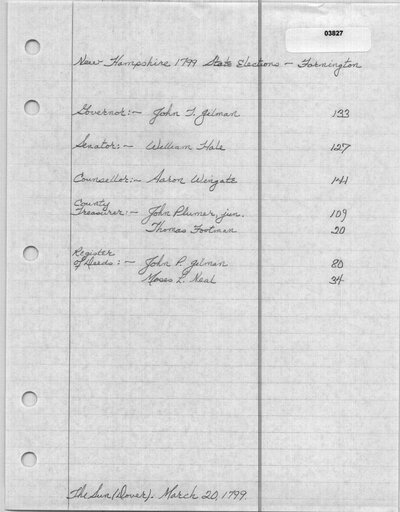 03827
New Hampshire 1799 State Elections - Farmington
Governor:- John T. Gilman 133
Senator:- William Hale 127
Counsellor:- Aaron Wingate 141
County
Treasurer:- John Plumer, jun. 109
Thomas Footman 20
Register
of Deeds:- John P. Gilman 80
Moses L. Neal 34
The Sun (Dover). March 20, 1799.